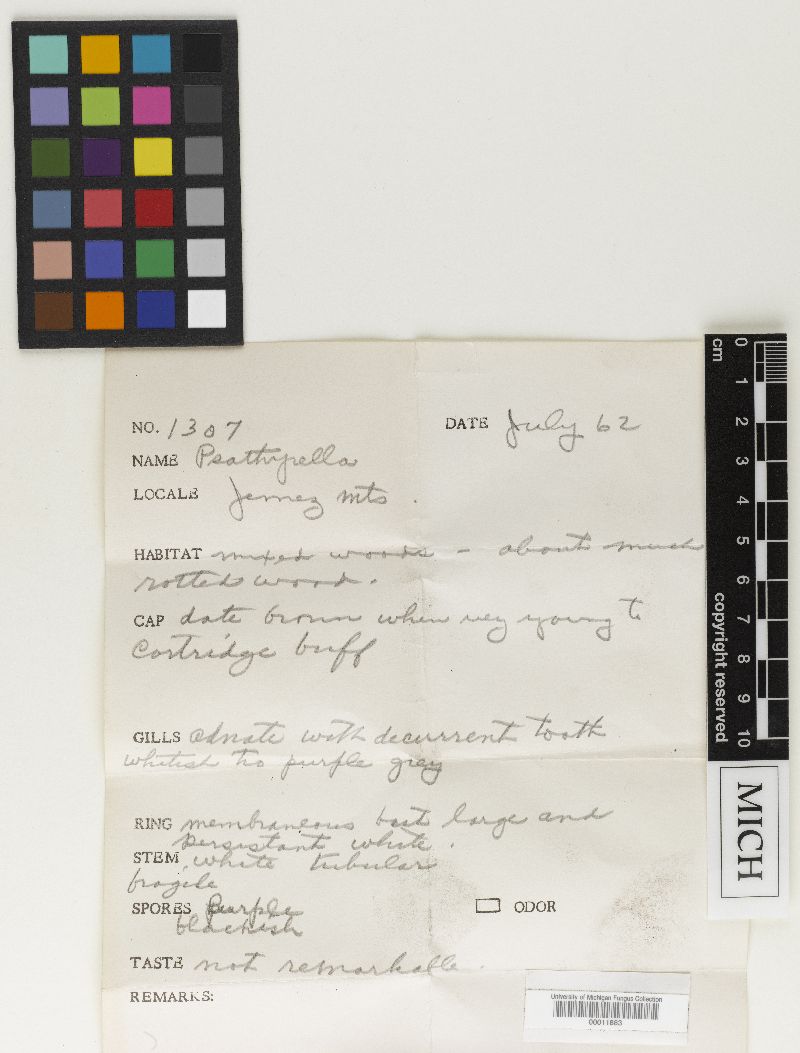 NO. 1307 DATE July 62
NAME Psathyrella
LOCALE Jemez mts.
HABITAT mixed woods - about much
rotted wood.
CAP date brown when very young to
Cartridge buff
GILLS adnate with decurrent tooth
whitish to purple grey
RING membraneous but large and
persistant white.
STEM white tubular
fragile
SPORES purple
blackish
ODOR
TASTE not remarkable.
REMARKS:
cm 0 1 2 3 4 5 6 7 8 9 10
copyright reserved
MICH
University of Michigan Fungus Collection
00011883